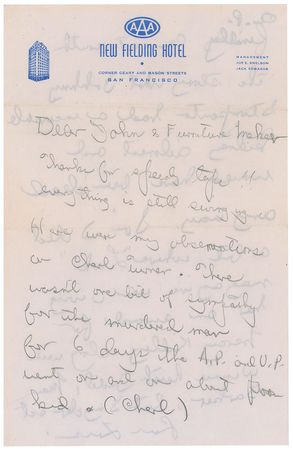 AAA
NEW FIELDING HOTEL
CORNER GEARY AND MASON STREETS
SAN FRANCISCO
MANAGEMENT
JACK EDWARDS
Dear John & Furniture Maker
Thanks for speedy tape
everything is still swing
Here were my observations
on Cheryl Turner. There
wasn't one bit of sympathy
for the murdered man
for 6 days the A.P. and U.P.
went on and on about poor
kid (Cheryl)